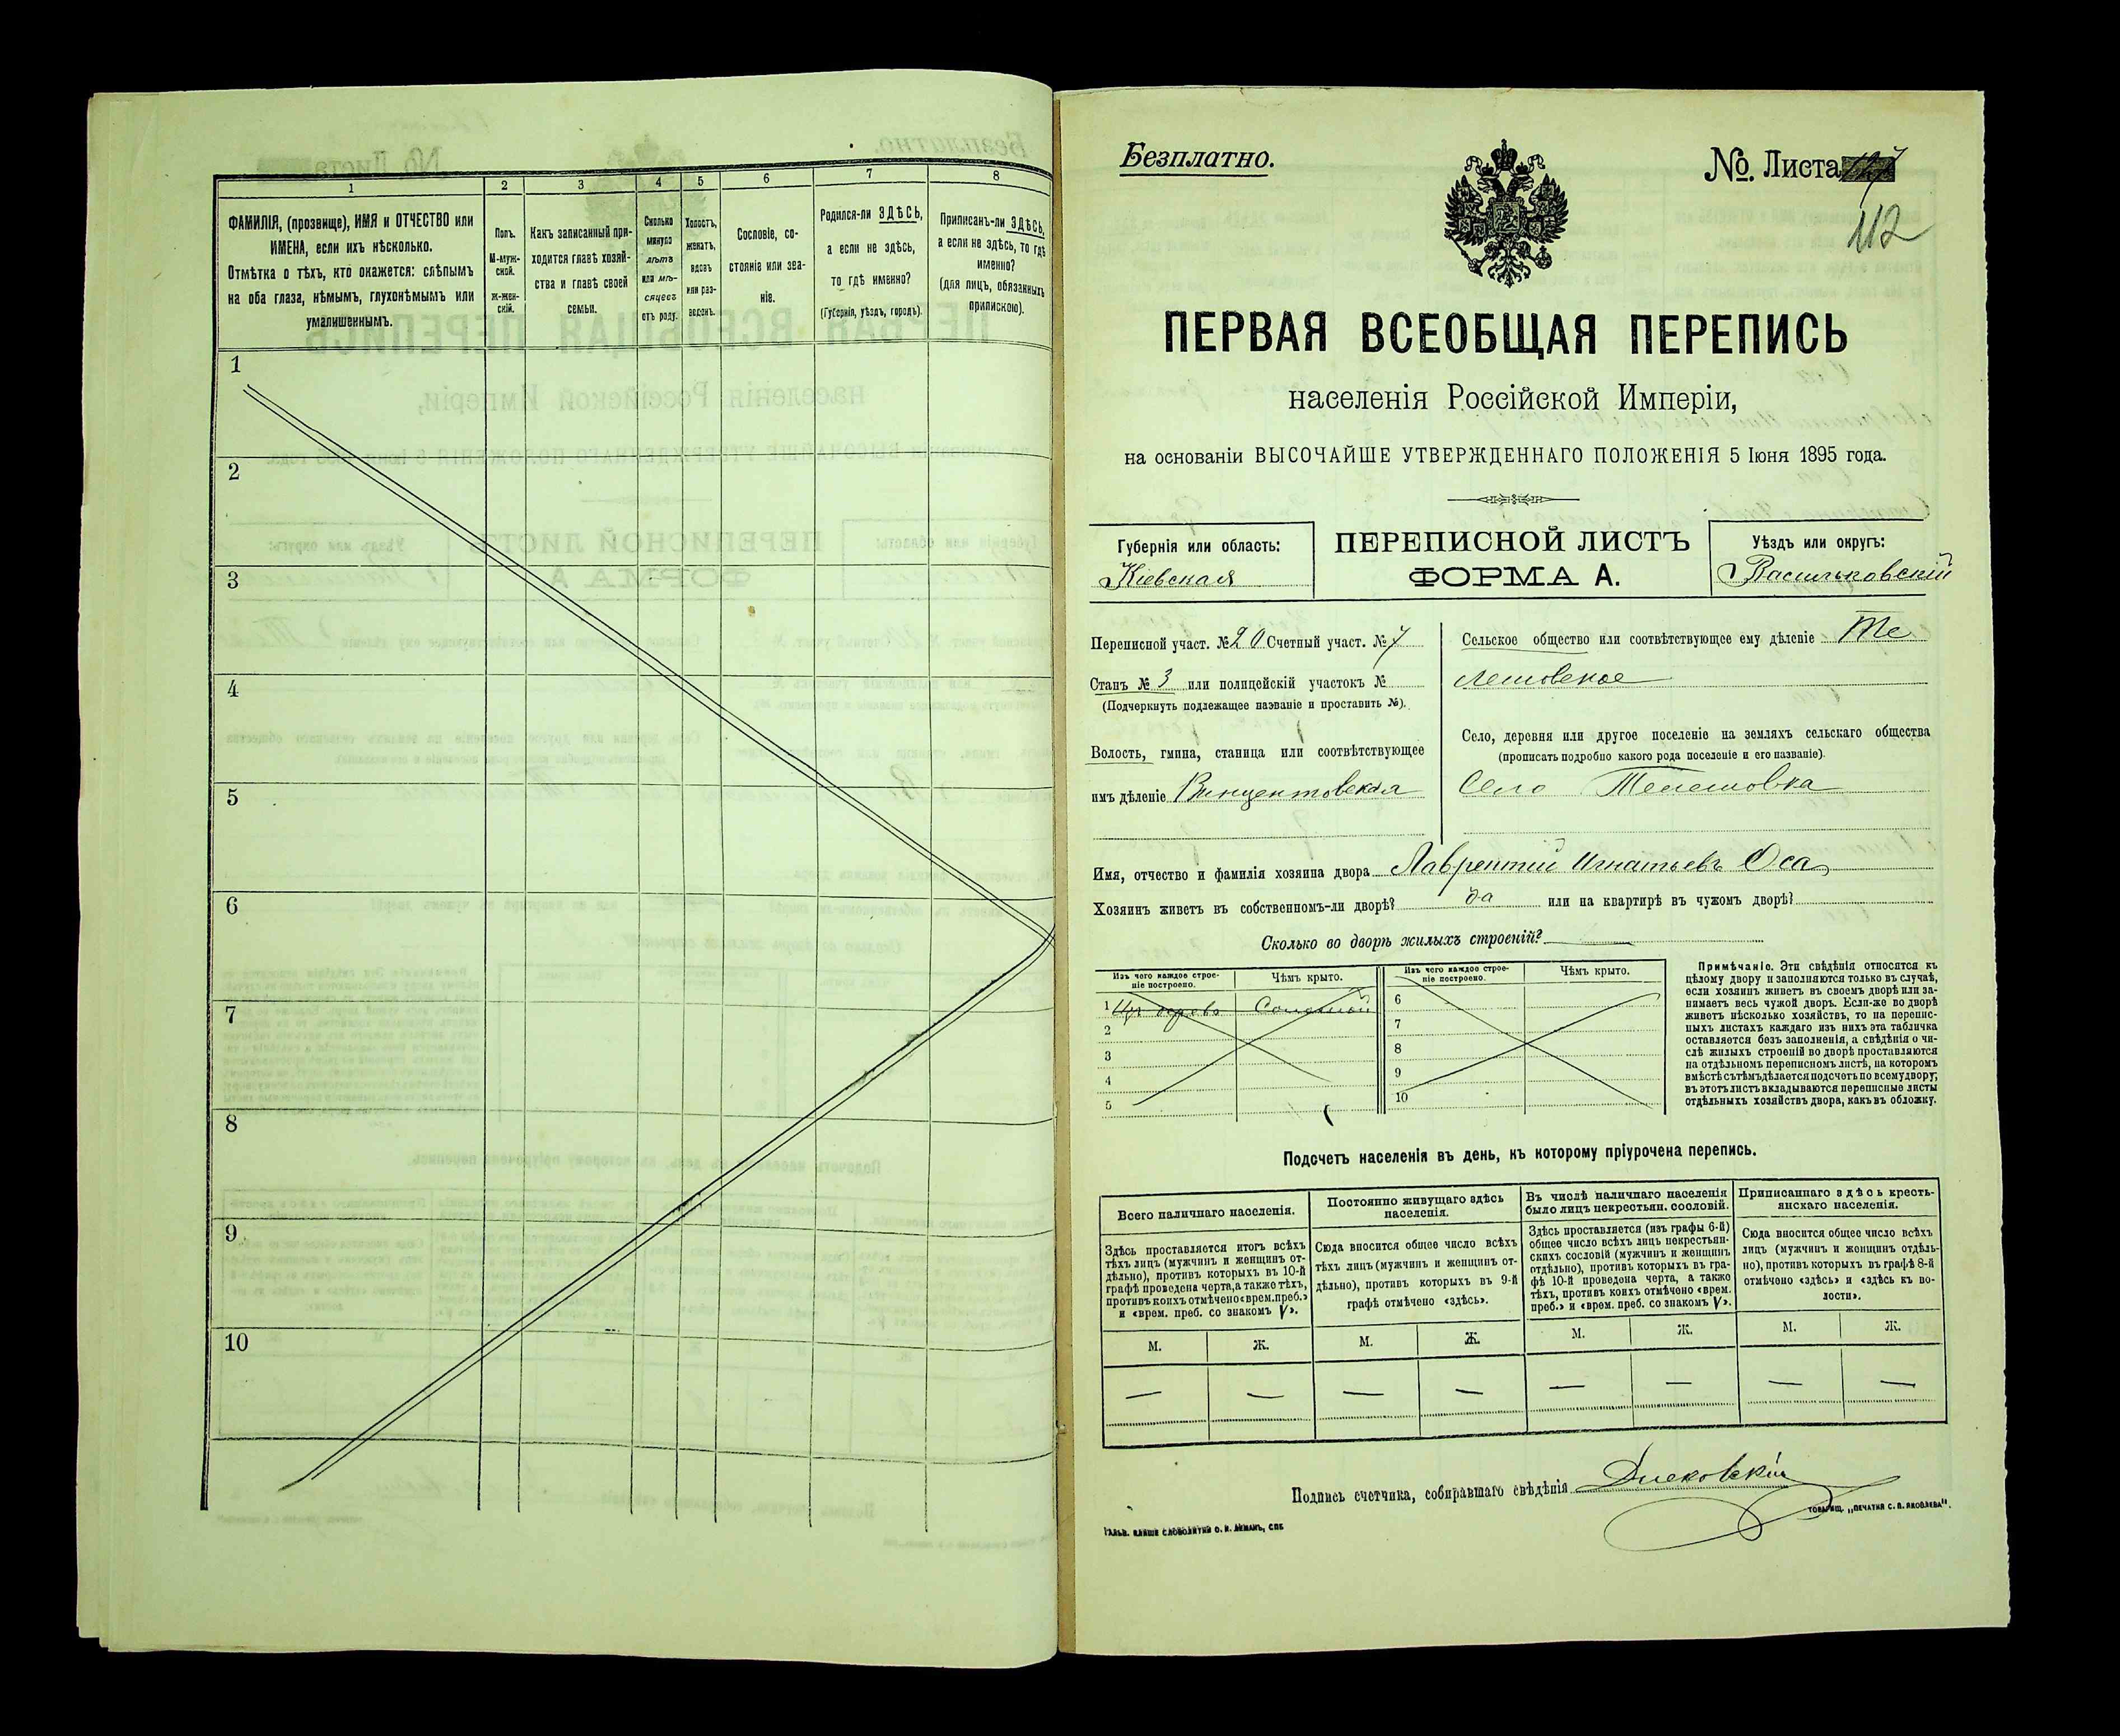 1 2 3 4 5 6 7 8
ФАМИЛІЯ, (прозвище), ИМЯ и ОТЧЕСТВО или
ИМЕНА, если ихъ нѣсколько.
Отмѣтка о тѣхъ, кто окажется: слѣпымъ
на оба глаза, нѣмымъ, глухонѣмымъ или
умалишеннымъ.
Полъ.
М-муж-
ской.
ж-жен-
скій.
Какъ записанный при-
ходится главѣ хозяй-
ства и главѣ своей
семьи.
Сколько
минуло
лѣтъ
или мѣ-
сяцевъ
отъ роду.
Холостъ,
женатъ,
вдовъ
или раз-
веденъ.
Сословіе, со-
стояніе или зва-
ніе.
Родился-ли ЗДѢСЬ,
а если не здѣсь,
то гдѣ именно?
(Губернія, уѣздъ, городъ).
Приписанъ-ли ЗДѢСЬ,
а если не здѣсь, то гдѣ
именно?
(для лицъ, обязанныхъ
припискою).
1
2
3
4
5
6
7
8
9
10
Безплатно.
№. Листа 127
112
ПЕРВАЯ ВСЕОБЩАЯ ПЕРЕПИСЬ
населенія Россійской Имперіи,
на основаніи ВЫСОЧАЙШЕ УТВЕРЖДЕННАГО ПОЛОЖЕНІЯ 5 Іюня 1895 года.
Губернія или область:
Кіевская
ПЕРЕПИСНОЙ ЛИСТЪ
ФОРМА А.
Уѣздъ или округъ:
Васильковскій
Переписной участ. № 20 Счетный участ. № 7
Станъ № 3 или полицейскій участокъ №
(Подчеркнуть подлежащее названіе и проставить №).
Волость, гмина, станица или соотвѣтствующее
имъ дѣленіе Винцентовская
Сельское общество или соотвѣтствующее ему дѣленіе Те
лешовское
Село, деревня или другое поселеніе на земляхъ сельскаго общества
(прописать подробно какого рода поселеніе и его названіе).
Село Телешовка
Имя, отчество и фамилія хозяина двора Лаврентий Игнатьевъ Оса
Хозяинъ живетъ въ собственномъ-ли дворѣ? да или на квартирѣ въ чужомъ дворѣ?
Сколько во дворѣ жилыхъ строеній?
Изъ чего каждое строе-
ніе построено.
Чѣмъ крыто.
1 Изъ дерева Соломой
2
3
4
5
Изъ чего каждое строе-
ніе построено.
Чѣмъ крыто.
6
7
8
9
10
Примѣчаніе. Эти свѣдѣнія относятся къ
цѣлому двору и заполняются только въ случаѣ,
если хозяинъ живетъ въ своемъ дворѣ или за-
нимаетъ весь чужой дворъ. Если-же во дворѣ
живетъ нѣсколько хозяйствъ, то на перепис-
ныхъ листахъ каждаго изъ нихъ эта табличка
оставляется безъ заполненія, а свѣдѣнія о чи-
слѣ жилыхъ строеній во дворѣ проставляются
на отдѣльномъ переписномъ листѣ, на которомъ
вмѣстѣ съ тѣмъ дѣлается подсчетъ по всему двору;
въ этотъ листъ вкладываются переписные листы
отдѣльныхъ хозяйствъ двора, какъ въ обложку.
Подсчетъ населенія въ день, къ которому пріурочена перепись.
Всего наличнаго населенія.
Здѣсь проставляется итогъ всѣхъ
тѣхъ лицъ (мужчинъ и женщинъ от-
дѣльно), противъ которыхъ въ 10-й
графѣ проведена черта, а также тѣхъ,
противъ коихъ отмѣчено «врем. преб.»
и «врем. преб. со знакомъ V».
Постоянно живущаго здѣсь
населенія.
Сюда вносится общее число всѣхъ
тѣхъ лицъ (мужчинъ и женщинъ от-
дѣльно), противъ которыхъ въ 9-й
графѣ отмѣчено «здѣсь».
Въ числѣ наличнаго населенія
было лицъ некрестьян. сословій.
Здѣсь проставляется (изъ графы 6-й)
общее число всѣхъ лицъ некрестьян-
скихъ сословій (мужчинъ и женщинъ
отдѣльно), противъ которыхъ въ гра-
фѣ 10-й проведена черта, а также
тѣхъ, противъ коихъ отмѣчено «врем.
преб.» и «врем. преб. со знакомъ V».
Приписаннаго здѣсь кресть-
янскаго населенія.
Сюда вносится общее число всѣхъ
лицъ (мужчинъ и женщинъ отдѣль-
но), противъ которыхъ въ графѣ 8-й
отмѣчено «здѣсь» и «здѣсь къ во-
лости».
М. Ж. М. Ж. М. Ж. М. Ж.
— — — — — — — —
Подпись счетчика, собиравшаго свѣдѣнія
ТОВАРИЩ. „ПЕЧАТНЯ С. П. ЯКОВЛЕВА".